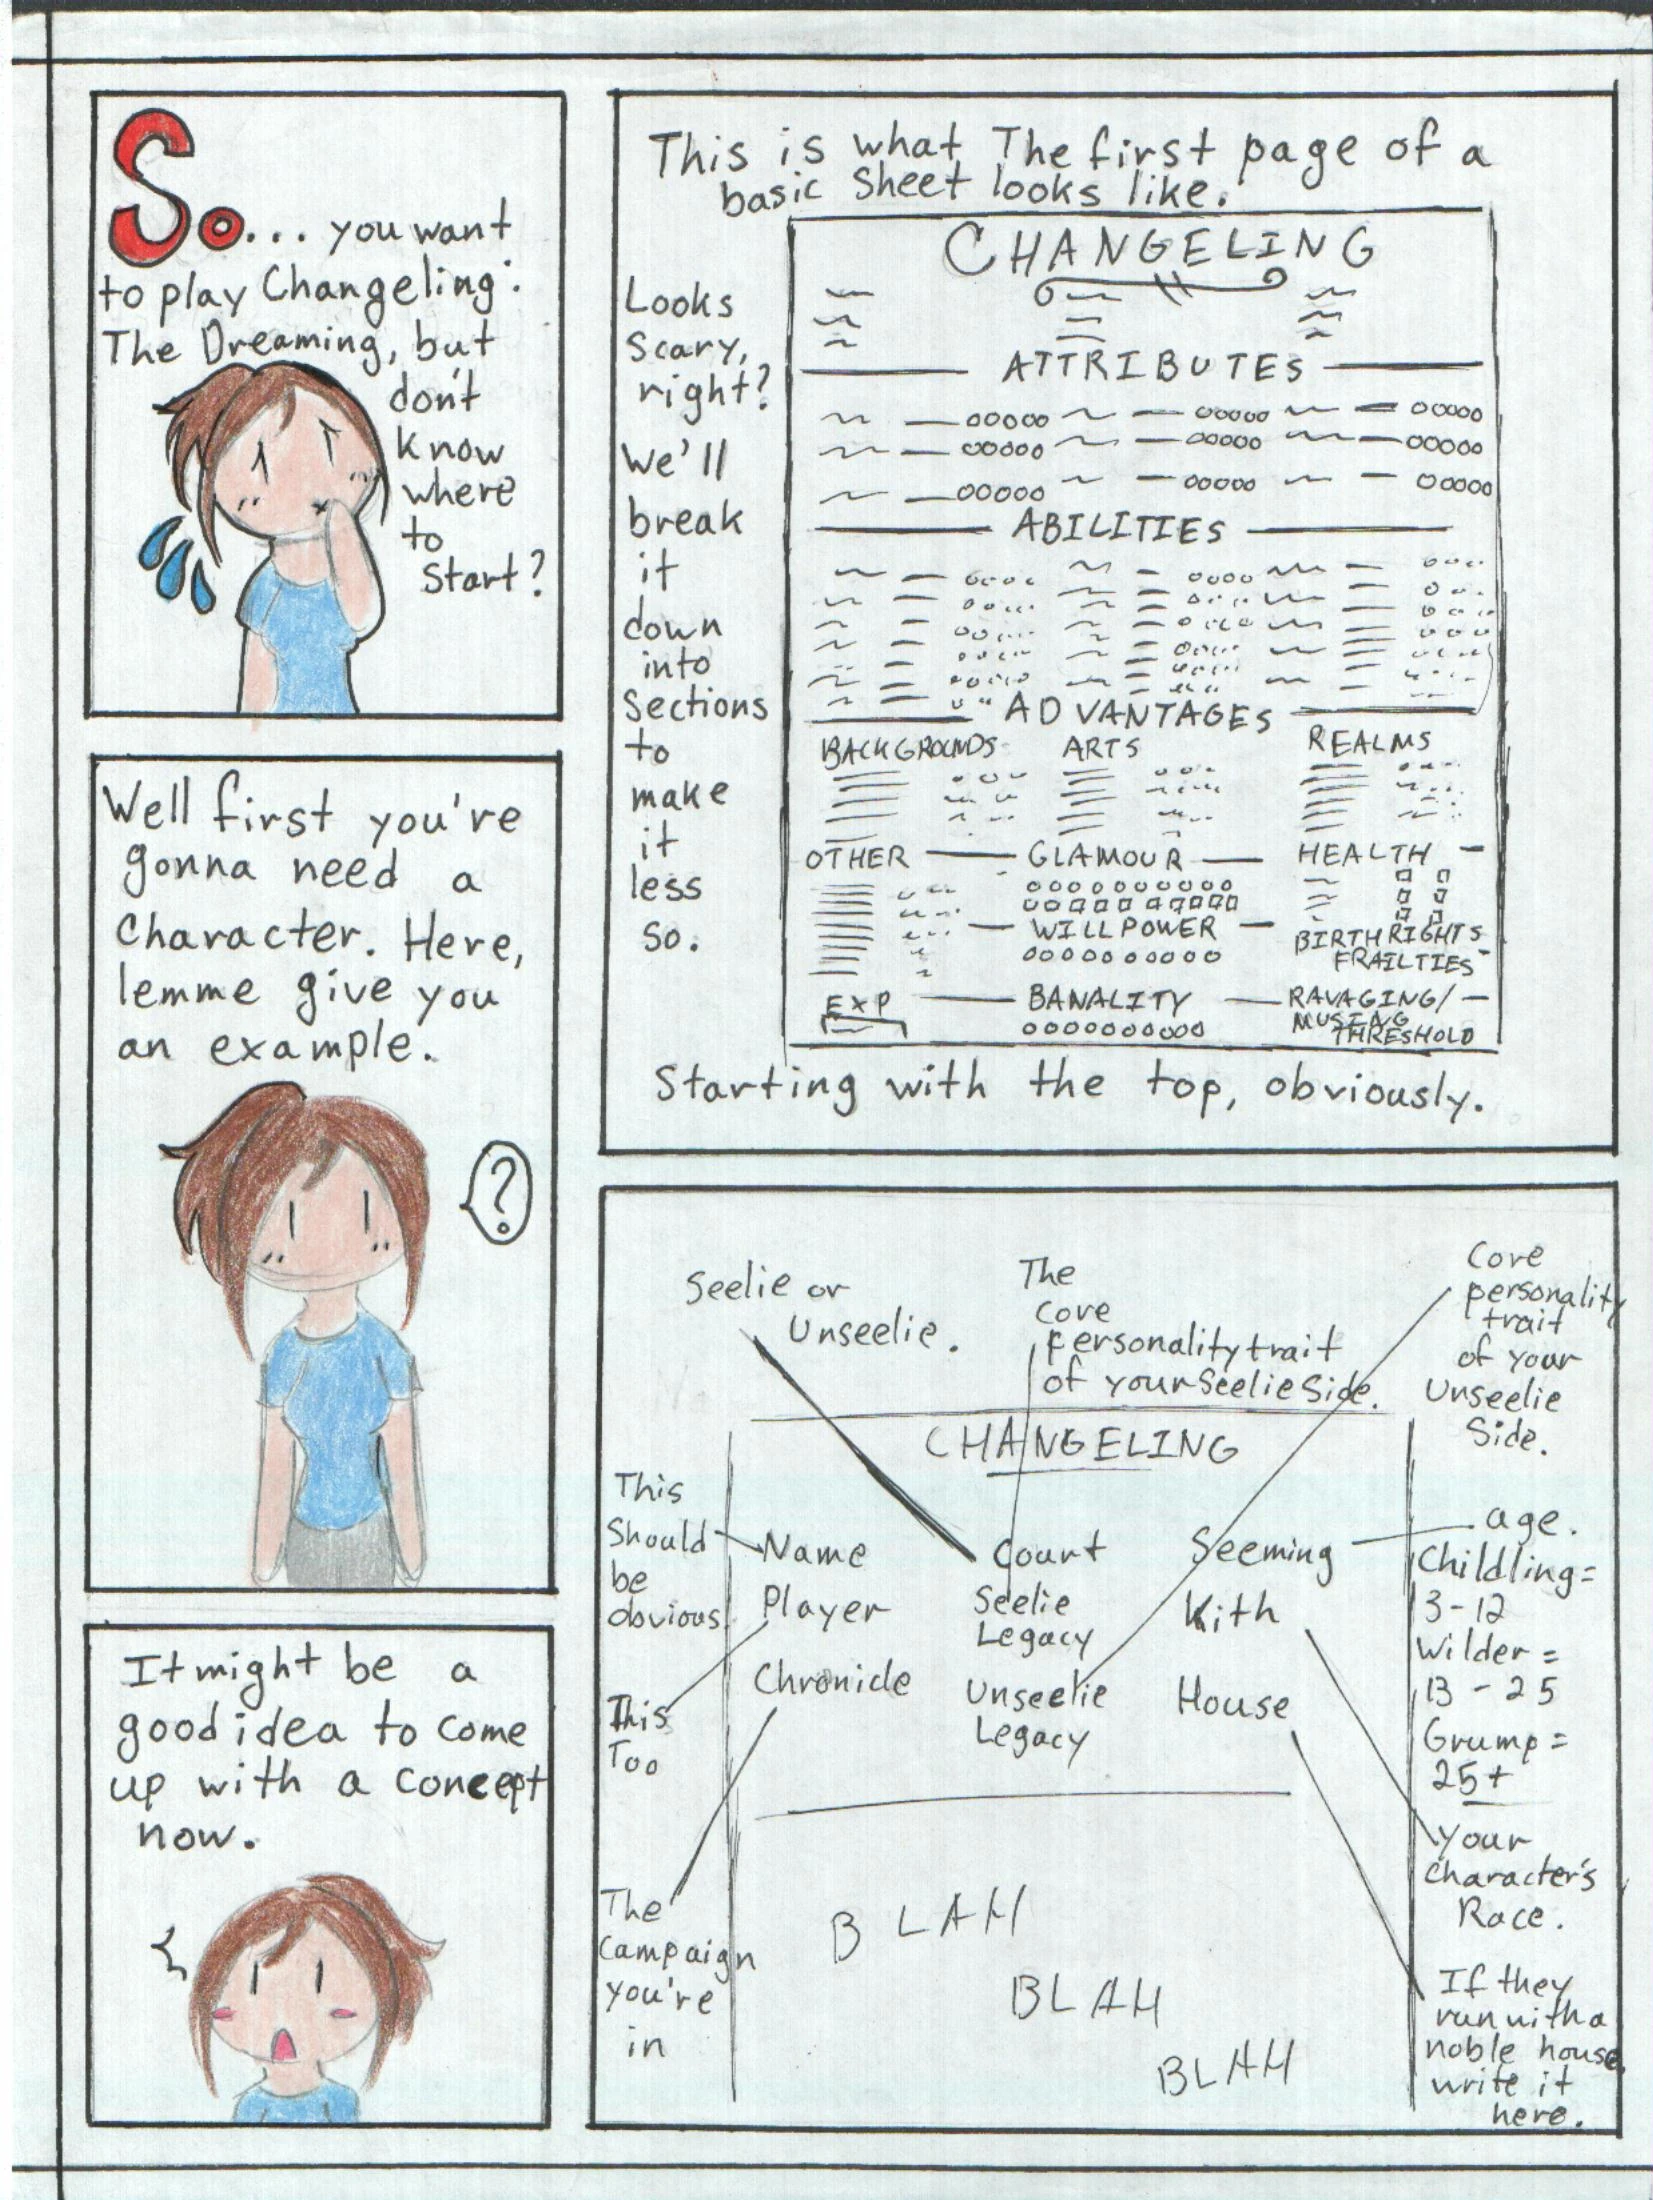 So... you want
to play Changeling:
The Dreaming, but
don't
know
where
to
start?
Well first you're
gonna need a
Character. Here,
lemme give you
an example.
?
It might be a
good idea to come
up with a concept
now.
This is what The first page of a
basic sheet looks like.
Looks
Scary,
right?
We'll
break
it
down
into
Sections
to
make
it
less
so.
CHANGELING
ATTRIBUTES
ABILITIES
ADVANTAGES
BACKGROUNDS ARTS REALMS
OTHER GLAMOUR HEALTH
WILLPOWER
BIRTHRIGHTS
FRAILTIES
EXP BANALITY RAVAGING/
MUSING
THRESHOLD
Starting with the top, obviously.
Seelie or
Unseelie.
The
Core
personality trait
of your Seelie Side.
Core
personality
trait
of your
Unseelie
Side.
CHANGELING
This
Should
be
obvious
This
Too
The
Campaign
you're
in
Name
Player
Chronicle
Court
Seelie
Legacy
Unseelie
Legacy
Seeming
Kith
House
age.
Childling=
3-12
Wilder=
13-25
Grump=
25+
Your
Character's
Race.
If they
run with a
noble house,
write it
here.
BLAH
BLAH
BLAH